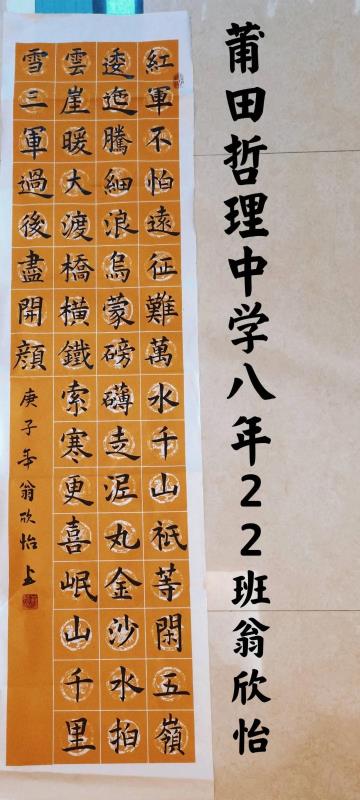 莆田哲理中学八年22班翁欣怡
紅軍不怕遠征難萬水千山祇等閑五嶺
逶迤騰細浪烏蒙磅礴走泥丸金沙水拍
雲崖暖大渡橋橫鐵索寒更喜岷山千里
雪三軍過後盡開顔
庚子年翁欣怡上